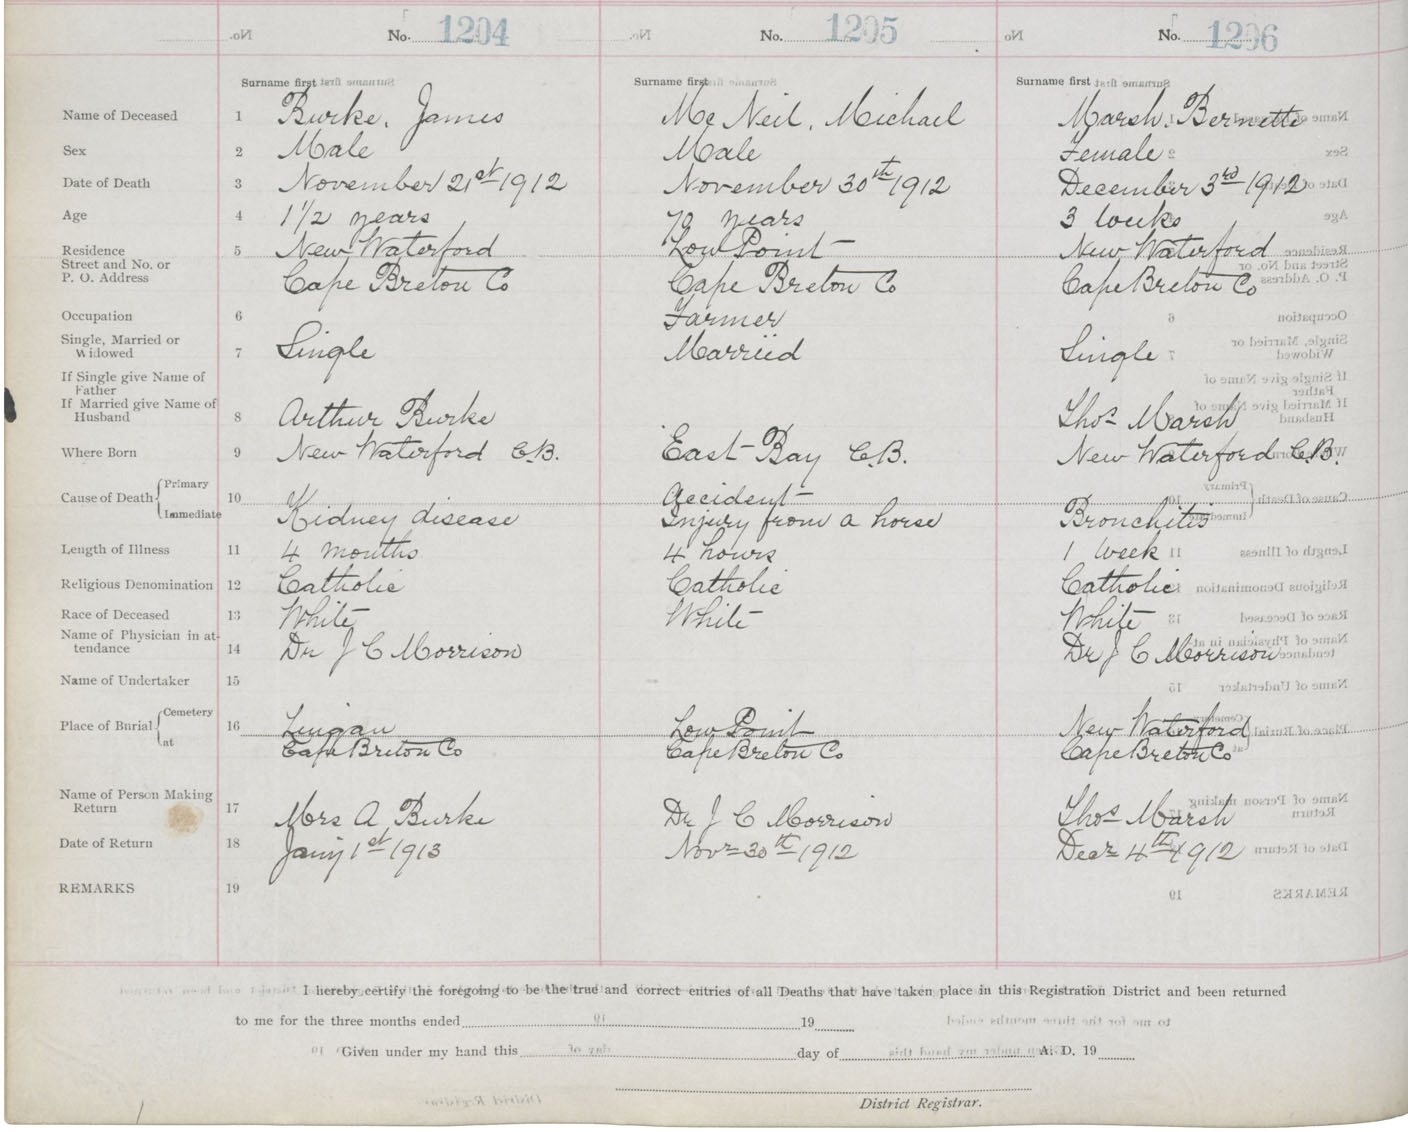 No. 1204 No. 1205 No. 1206
Surname first Surname first Surname first
Name of Deceased 1 Burke, James Mc Neil, Michael Marsh, Bernette
Sex 2 Male Male Female
Date of Death 3 November 21st 1912 November 30th 1912 December 3rd 1912
Age 4 1 1/2 years 70 years 3 weeks
Residence 5 New Waterford Low Point New Waterford
Street and No. or
P. O. Address Cape Breton Co Cape Breton Co Cape Breton Co
Occupation 6 Farmer
Single, Married or
Widowed 7 Single Married Single
If Single give Name of
Father
If Married give Name of
Husband 8 Arthur Burke Thos Marsh
Where Born 9 New Waterford C.B. East Bay C.B. New Waterford C.B.
Cause of Death { Primary 10 Accident
Immediate Kidney disease Injury from a horse Bronchitis
Length of Illness 11 4 months 4 hours 1 week
Religious Denomination 12 Catholic Catholic Catholic
Race of Deceased 13 White White White
Name of Physician in at-
tendance 14 Dr J C Morrison Dr J C Morrison
Name of Undertaker 15
Place of Burial { Cemetery 16 Lingan Low Point New Waterford
at Cape Breton Co Cape Breton Co Cape Breton Co
Name of Person Making
Return 17 Mrs A Burke Dr J C Morrison Thos Marsh
Date of Return 18 Jany 1st 1913 Novr 30th 1912 Decr 4th 1912
REMARKS 19
I hereby certify the foregoing to be the true and correct entries of all Deaths that have taken place in this Registration District and been returned
to me for the three months ended 19
Given under my hand this day of A. D. 19
District Registrar.